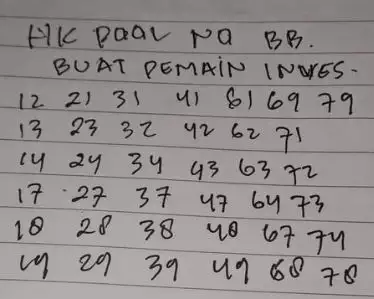 HK PAAL NA BB.
BUAT PEMAIN INVES-
12 21 31 41 61 69 79
13 23 32 42 62 71
14 24 34 43 63 72
17 27 37 47 64 73
18 28 38 48 67 74
19 29 39 49 68 78